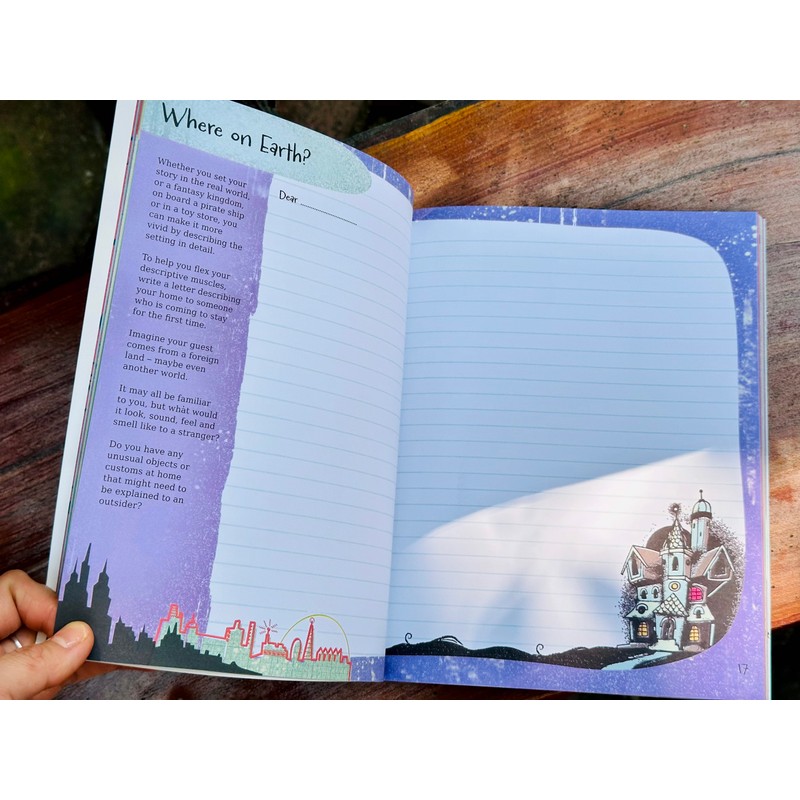 Where on Earth?
Whether you set your
story in the real world,
or a fantasy kingdom,
on board a pirate ship
or in a toy store, you
can make it more
vivid by describing the
setting in detail.
To help you flex your
descriptive muscles,
write a letter describing
your home to someone
who is coming to stay
for the first time.
Imagine your guest
comes from a foreign
land – maybe even
another world.
It may all be familiar
to you, but what would
it look, sound, feel and
smell like to a stranger?
Do you have any
unusual objects or
customs at home
that might need to
be explained to an
outsider?
Dear
17